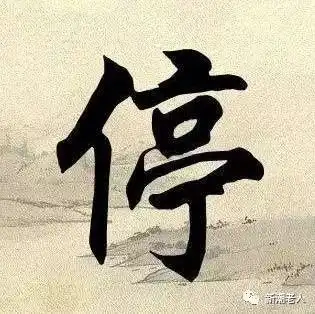 停
新滩老人